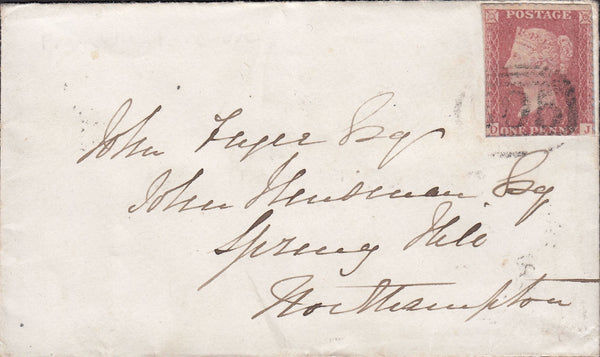 POSTAGE
ONE PENNY
D J
John Esq
John Hensman Esq
Spring Hill
Northampton